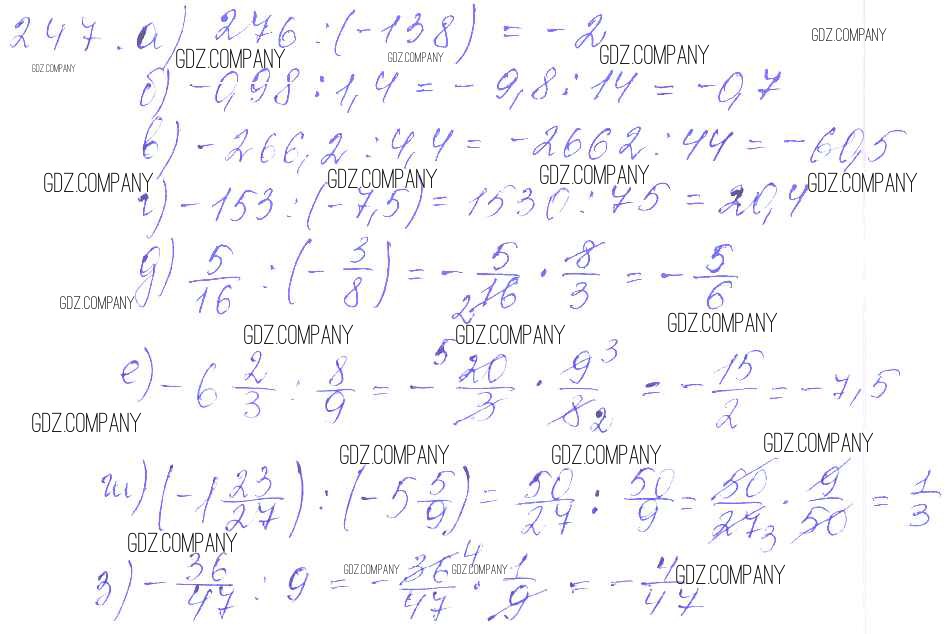 247. а) 276 : (-138) = -2
GDZ.COMPANY GDZ.COMPANY GDZ.COMPANY GDZ.COMPANY GDZ.COMPANY
б) -0,98 : 1,4 = -9,8 : 14 = -0,7
в) -266,2 : 4,4 = -2662 : 44 = -60,5
GDZ.COMPANY GDZ.COMPANY GDZ.COMPANY GDZ.COMPANY
г) -153 : (-7,5) = 1530 : 75 = 20,4
д) 5/16 : (-3/8) = -5/16 2 · 8/3 = -5/6
GDZ.COMPANY GDZ.COMPANY GDZ.COMPANY GDZ.COMPANY
е) -6 2/3 : 8/9 = - 5 20/3 · 9 3/8 2 = -15/2 = -7,5
GDZ.COMPANY GDZ.COMPANY GDZ.COMPANY GDZ.COMPANY
ж) (-1 23/27) : (-5 5/9) = 50/27 : 50/9 = 50/27 3 · 9/50 = 1/3
GDZ.COMPANY GDZ.COMPANY GDZ.COMPANY GDZ.COMPANY
з) -36/47 : 9 = -36 4/47 · 1/9 = -4/47